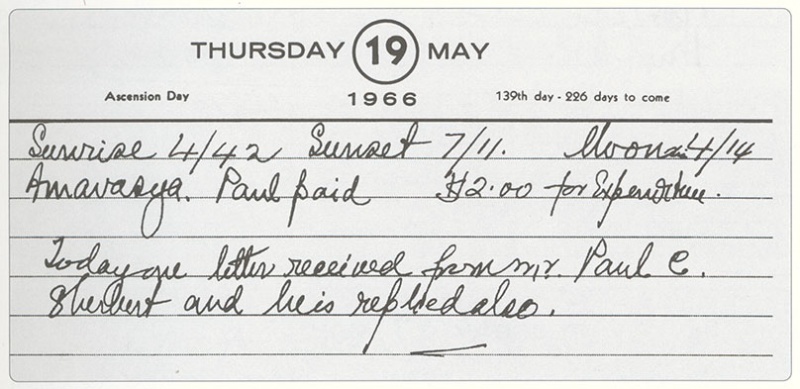 THURSDAY 19 MAY
Ascension Day 1966 139th day - 226 days to come
Sunrise 4/42 Sunset 7/11. Moon 4/14
Amavasya. Paul paid $2.00 for Expenditure.
Today one letter received from mr. Paul C.
Sherbert and he is replied also.